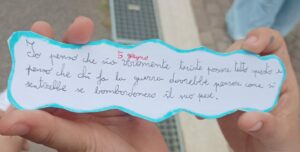 5 giugno
Io penso che sia veramente triste pensare tutto questo e
penso che chi fa la guerra dovrebbe pensare come si
sentirebbe se bombardassero il suo paese.